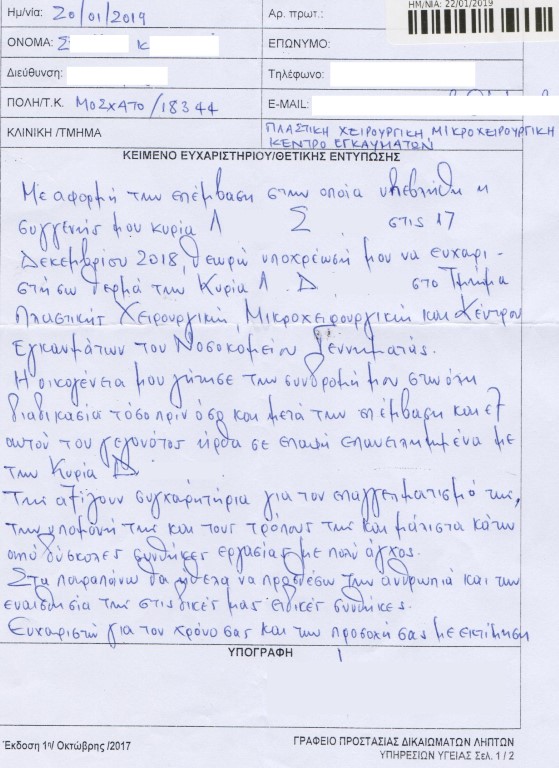 Ημ/νία: 20/01/2019
Αρ. πρωτ.:
ΗΜ/ΝΙΑ: 22/01/2019
ΟΝΟΜΑ: Σ Κ
ΕΠΩΝΥΜΟ:
Διεύθυνση:
Τηλέφωνο:
ΠΟΛΗ/Τ.Κ. ΜΟΣΧΑΤΟ/18344
E-MAIL:
ΚΛΙΝΙΚΗ /ΤΜΗΜΑ
ΠΛΑΣΤΙΚΗ ΧΕΙΡΟΥΡΓΙΚΗ ΜΙΚΡΟΧΕΙΡΟΥΡΓΙΚΗ
ΚΕΝΤΡΟ ΕΓΚΑΥΜΑΤΩΝ
ΚΕΙΜΕΝΟ ΕΥΧΑΡΙΣΤΗΡΙΟΥ/ΘΕΤΙΚΗΣ ΕΝΤΥΠΩΣΗΣ
Με αφορμή την επέμβαση στην οποία υπεβλήθη η
συγγενής μου κυρία Λ Σ στις 17
Δεκεμβρίου 2018, θεωρώ υποχρέωσή μου να ευχαρι-
στήσω θερμά την Κυρία Λ. Δ στο Τμήμα
Πλαστικής Χειρουργικής, Μικροχειρουργικής και Κέντρου
Εγκαυμάτων του Νοσοκομείου Γεννηματάς.
Η οικογένεια μου ζήτησε την συνδρομή μου στην όλη
διαδικασία τόσο πριν όσο και μετά την επέμβαση και εξ
αυτού του γεγονότος ήρθα σε επαφή επανειλημμένα με
την Κυρία Δ
Της αξίζουν συγχαρητήρια για τον επαγγελματισμό της,
την υπομονή της και τους τρόπους της και μάλιστα κάτω
από δύσκολες συνθήκες εργασίας με πολύ άγχος.
Στα παραπάνω θα ήθελα να προσθέσω την ανθρωπιά και την
ευαισθησία της στις δικές μας ειδικές συνθήκες.
Ευχαριστώ για τον χρόνο σας και την προσοχή σας με εκτίμηση
ΥΠΟΓΡΑΦΗ
Έκδοση 1η/ Οκτώβρης /2017
ΓΡΑΦΕΙΟ ΠΡΟΣΤΑΣΙΑΣ ΔΙΚΑΙΩΜΑΤΩΝ ΛΗΠΤΩΝ
ΥΠΗΡΕΣΙΩΝ ΥΓΕΙΑΣ Σελ. 1 / 2